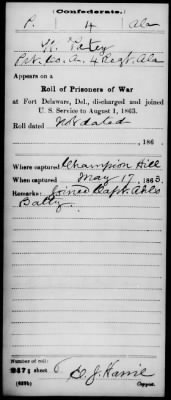 Confederate.
P. 4 Ala
Pvt. Co. A. 4 Regt. Ala
Appears on a
Roll of Prisoners of War
at Fort Delaware, Del., discharged and joined
U. S. Service to August 1, 1863.
Roll dated Not dated
, 186
Where captured Champion Hill
When captured May 17, 1863.
Remarks: Joined Capt. Ahls
Batty.
Number of roll:
237; sheet 6
Copyist.